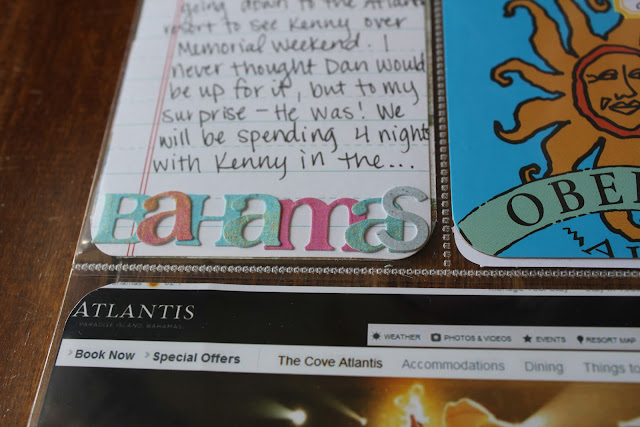 going down to the Atlantis
resort to see Kenny over
Memorial Weekend. I
never thought Dan would
be up for it, but to my
surprise - He was! We
will be spending 4 nights
with Kenny in the...
BaHamas
OBE
ATLANTIS
PARADISE ISLAND, BAHAMAS
WEATHER PHOTOS & VIDEOS EVENTS RESORT MAP
Book Now Special Offers The Cove Atlantis Accommodations Dining Things to